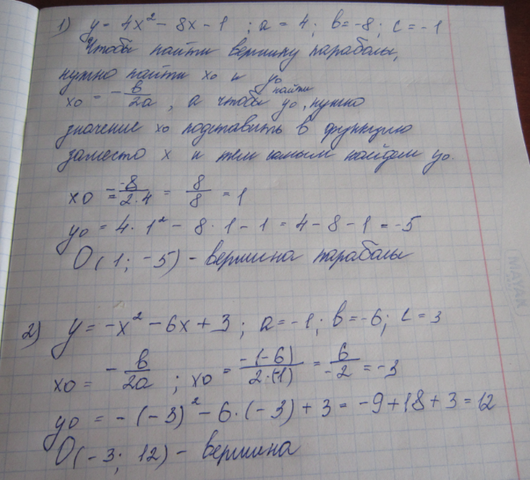 1) y = 4x² - 8x - 1 ; a = 4; b = -8; c = -1
Чтобы найти вершину параболы,
нужно найти x0 и y0
x0 = -b/2a, а чтобы найти y0, нужно
значение x0 подставить в функцию
заместо x и тем самым найдем y0
x0 = --8/2·4 = 8/8 = 1
y0 = 4·1² - 8·1 - 1 = 4 - 8 - 1 = -5
O(1; -5) - вершина параболы
2) y = -x² - 6x + 3; a = -1; b = -6; c = 3
x0 = -b/2a ; x0 = -(-6)/2·(-1) = 6/-2 = -3
y0 = -(-3)² - 6·(-3) + 3 = -9 + 18 + 3 = 12
O(-3; 12) - вершина